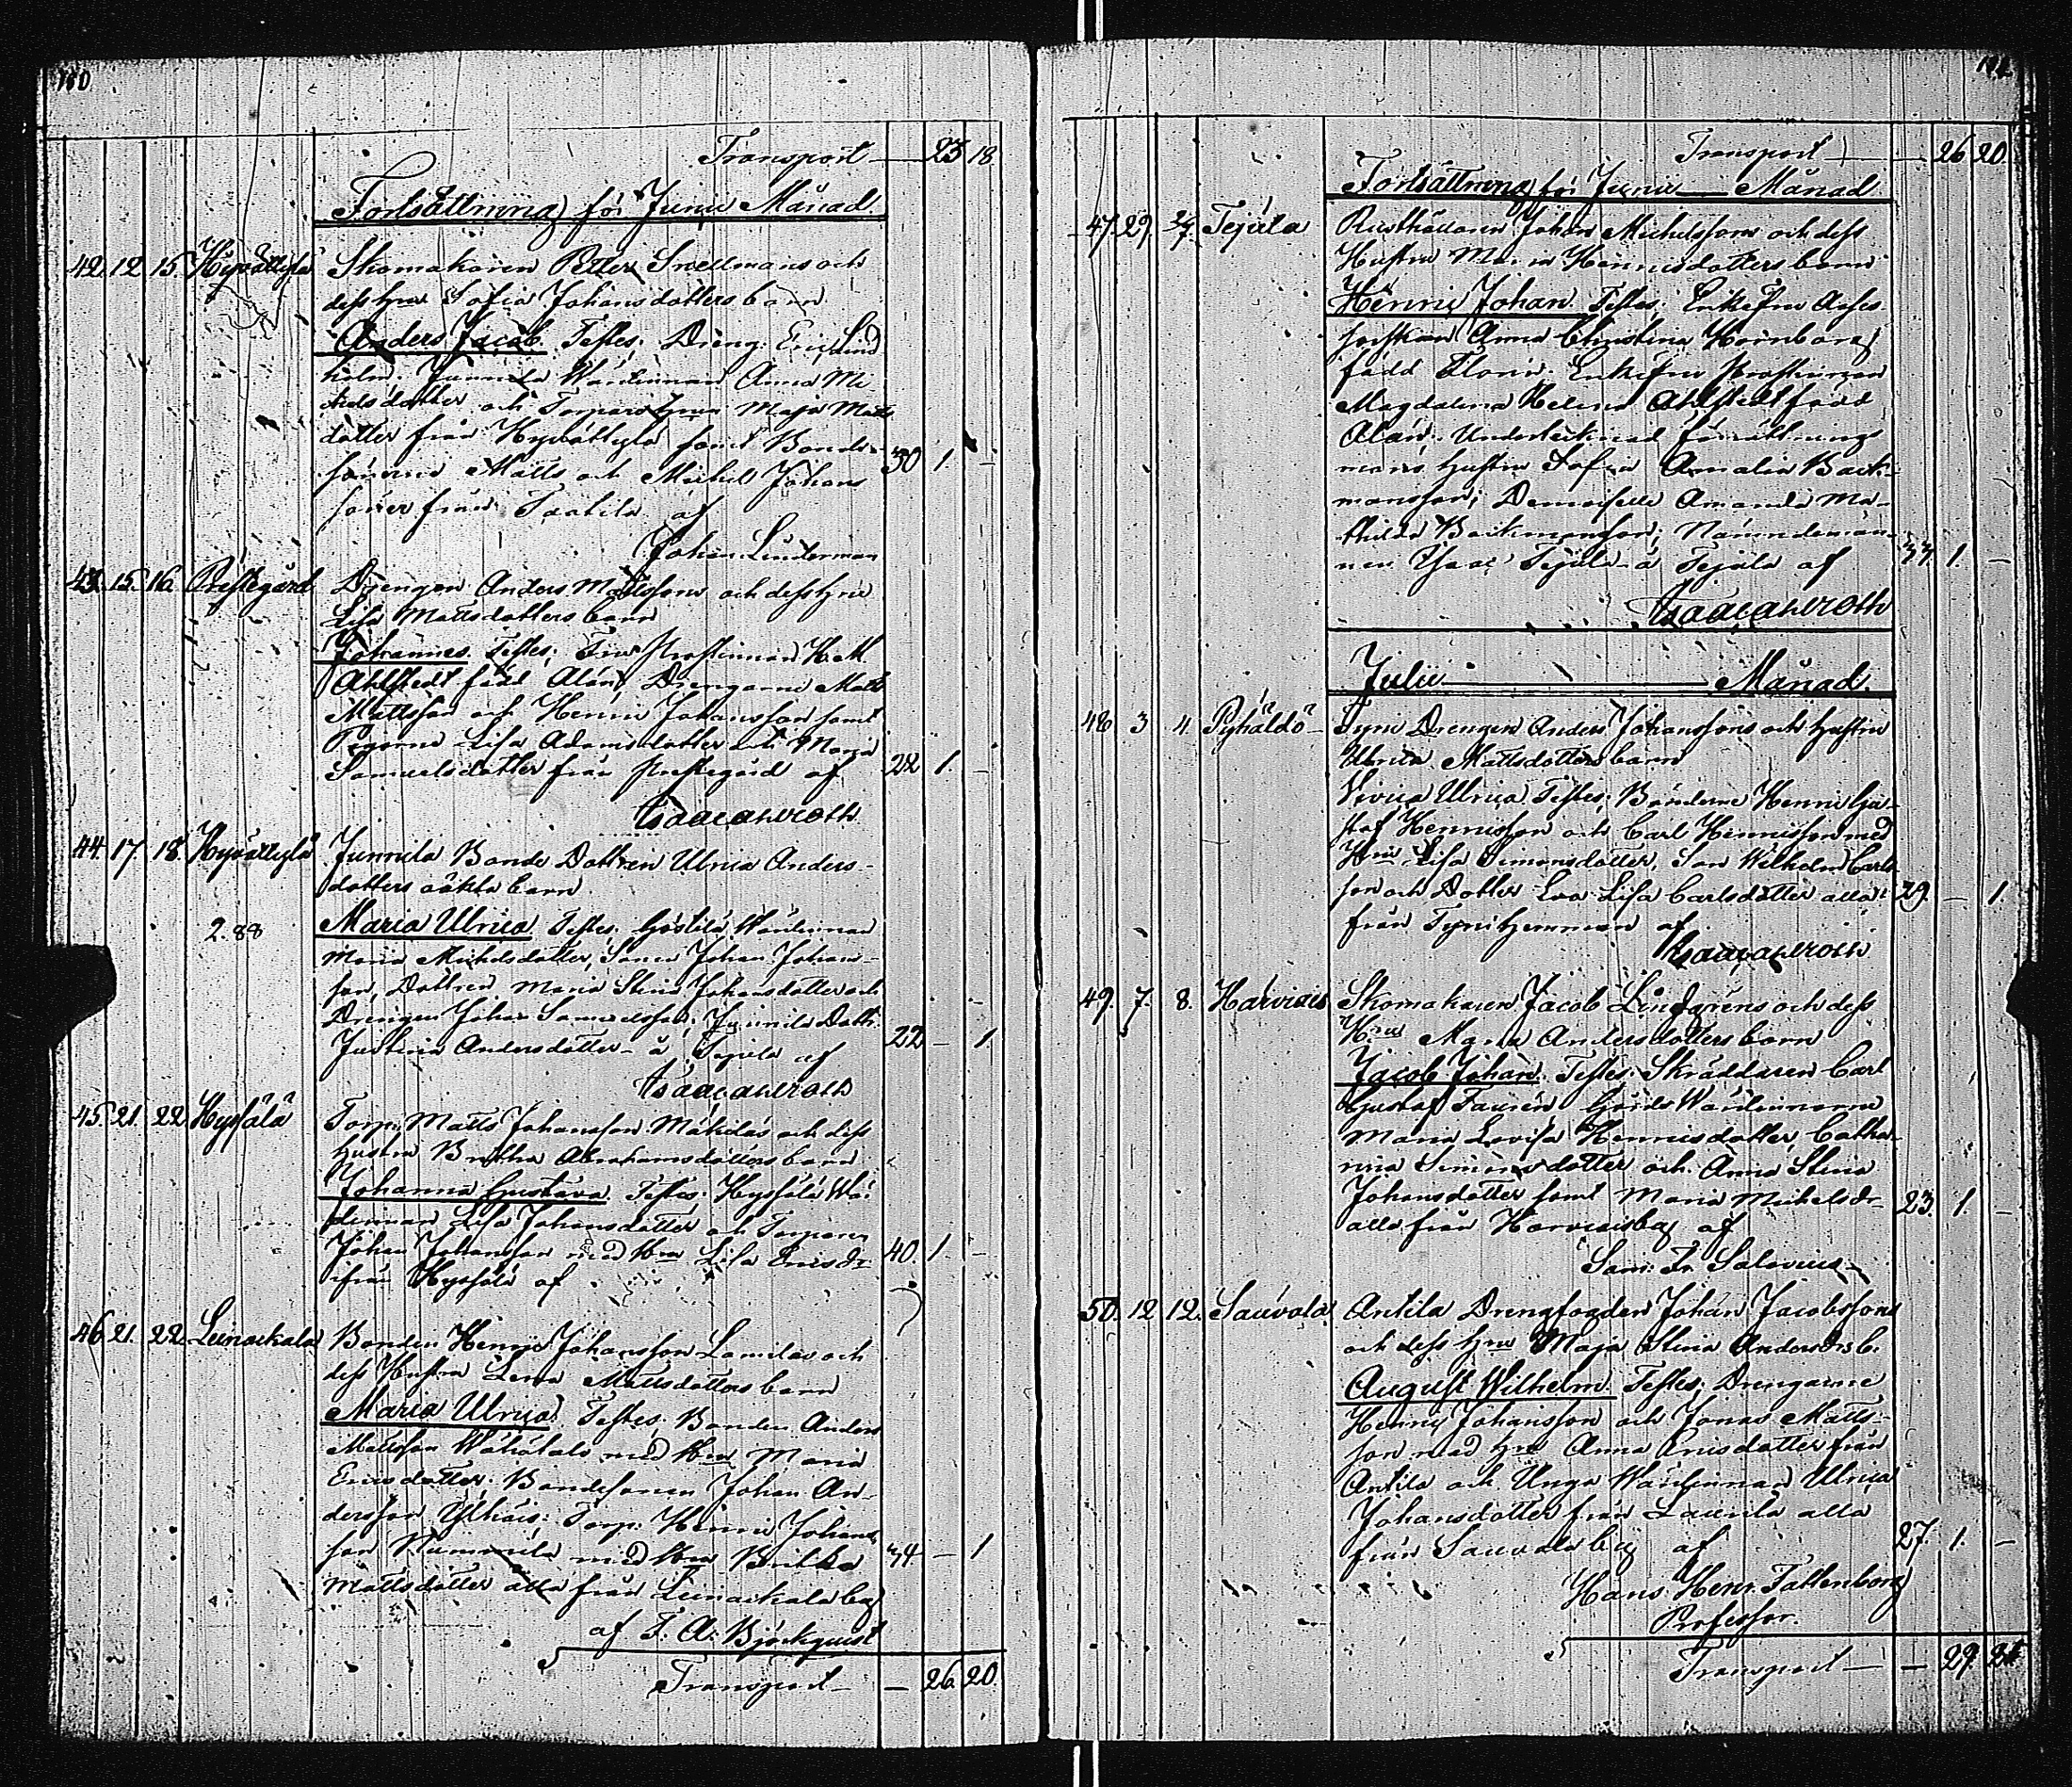 180
Transport — 23 18
Fortsättning för Junii Månad
42. 12. 15. Hyvättylä Skomakaren Petter Snellmans och
dess Hru Sofia Johansdotters barn
Anders Jacob. Testes: Dreng. Eric Lind
holm. Junnila Wärdinnan Anna Mi
chelsdotter och Torpare Hrun Maja Matts
dotter från Hyvättylä samt Bonde-
sönerne Matts och Michel Johans 30 1. -
söner från Taatila af
Johan Linderman
43. 15. 16. Prestegård Drengen Anders Mattssons och dess Hru
Lisa Mattsdotters barn
Johannes. Testes; Fru Prostinnan H. M.
Ahlstedt född Alán; Drengarne Matts
Mattsson och Henric Johansson samt
Pigorne Lisa Adamsdotter och Maria
Samuelsdotter från Prestegård af 22 1. -
Isaac Ahlroth
44. 17. 18. Hyvättylä Junnila Bonde Dottren Ulrica Anders-
dotters oäkta barn
2.88 Maria Ulrica Testes: Wärdinnan
Maria Michelsdotter, Sonen Johan Johans-
son, Dottren Maria Stina Johansdotter och
Drengen Johan Samuelsson; Junnila Dott.
Justina Andersdotter - à Tejula af 22 - 1.
Isaac Ahlroth
45. 21. 22. Hyssälä Torp: Matts Johansson Mäkiläs och dess
Hustru Britha Abrahamsdotters barn
Johanna Gustava. Testes: Hyssälä Wär
dinnan Lisa Johansdotter och Torparen
Johan Johansson med Hru Lisa Ericsdr 40. 1. -
ifrån Hyssälä af
46. 21. 22. Leinackala Bonden Henric Johansson Lamilas och
dess Hustru Lena Mattsdotters barn
Maria Ulrica. Testes: Bonden Anders
Mattsson Wähätalo med Hru Maria
Ericsdotter. Bondesonen Johan An-
dersson Ylhäis. Torp: Henric Johans
son Nummila med Hru Britha 34 - 1
Mattsdotter alla från Leinackala by
af F. A. Björkquist
Transport — — 26. 20.
Transport — — 26 20.
Fortsättning för Junii — Månad
47. 29. 2/7. Tejula Rusthållaren Johan Michelssons och dess
Hustru Maria Henricsdotters barn
Henric Johan. Testes; Enkefru Asses-
sorskan Anna Christina Hornborg
född Florin. Enkefru Prostinnan
Magdalena Helena Ahlstedt född
Alán. Undertecknad förrättnings
mans Hustru Sofia Amalia Back-
mansson; Demoiselle Amanda Ma-
thilda Backmansson; Nämndeman-
nen Isaac Tejula à Tejula af 37. 1. -
Isaac Ahlroth
Julii — Månad.
48 3 4. Pyhäldö Tyni Drengen Anders Johanssons och Hustru
Ulrica Mattsdotters barn
Vivica Ulrica. Testes: Bönderne Henric Gu-
staf Henricsson och Carl Henricsson med
Hru Lisa Simonsdotter, Son Wilhelm Carls
son och Dotter Eva Lisa Carlsdotter alla 29. - 1.
från Tyni Hemman af
Isaac Ahlroth
49. 7. 8. Harviais Skomakaren Jacob Lindgrens och dess
Hru Maria Andersdotters barn
Jacob Johan. Testes: Skräddaren Carl
Gustaf Taurén Wärdinnorne
Maria Lovisa Henricsdotter, Catha-
rina Simonsdotter och Anna Stina
Johansdotter samt Maria Michelsdr 23. 1. -
alla från Harviais by af
Sam: Fr. Salovius
50. 12 12. Sauvala Antila Drengfogden Johan Jacobssons
och dess Hru Maja Stina Andersdrs b.
August Wilhelm. Testes; Drengarne
Henric Johansson och Jonas Matts-
son med Hru Anna Ericsdotter från
Antila och Unga Wärdinnan Ulrica
Johansdotter från Laurila alla
från Sauvala by af 27. 1. -
Hans Henr. Fattenborg
Professor.
Transport — — 29. 21